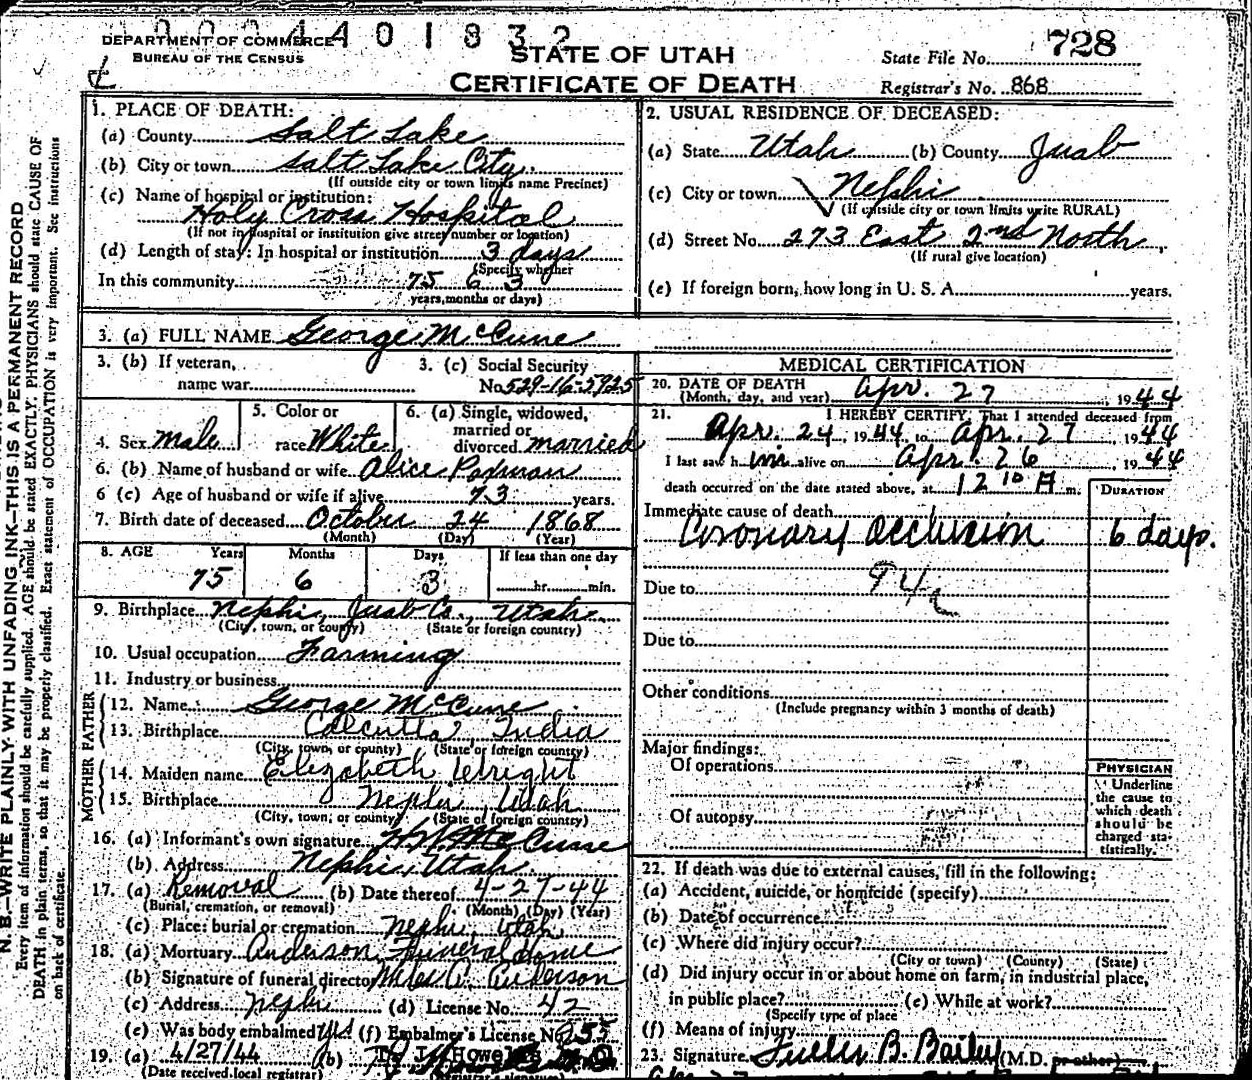 0004401832
DEPARTMENT OF COMMERCE
BUREAU OF THE CENSUS
STATE OF UTAH
CERTIFICATE OF DEATH
State File No. 728
Registrar's No. 868
N. B.—WRITE PLAINLY WITH UNFADING INK—THIS IS A PERMANENT RECORD
Every item of information should be carefully supplied. AGE should be stated EXACTLY. PHYSICIANS should state CAUSE OF
DEATH in plain terms, so that it may be properly classified. Exact statement of OCCUPATION is very important. See instructions
on back of certificate.
1. PLACE OF DEATH:
(a) County Salt Lake
(b) City or town Salt Lake City
(If outside city or town limits name Precinct)
(c) Name of hospital or institution:
Holy Cross Hospital
(If not in hospital or institution give street number or location)
(d) Length of stay: In hospital or institution 3 days
(Specify whether
In this community 75 6 3
years, months or days)
2. USUAL RESIDENCE OF DECEASED:
(a) State Utah (b) County Juab
(c) City or town Nephi
(If outside city or town limits write RURAL)
(d) Street No. 273 East 2nd North
(If rural give location)
(e) If foreign born, how long in U. S. A. years.
3. (a) FULL NAME George McCune
3. (b) If veteran,
name war
3. (c) Social Security
No. 529-16-5925
4. Sex Male
5. Color or
race White
6. (a) Single, widowed,
married or
divorced married
6. (b) Name of husband or wife Alice
6 (c) Age of husband or wife if alive 73 years.
7. Birth date of deceased October 24 1868
(Month) (Day) (Year)
8. AGE Years Months Days If less than one day
75 6 3 hr. min.
9. Birthplace Nephi, Juab Co., Utah
(City, town, or county) (State or foreign country)
10. Usual occupation Farming
11. Industry or business
FATHER
12. Name George McCune
13. Birthplace Calcutta, India
(City, town, or county) (State or foreign country)
MOTHER
14. Maiden name Elizabeth Wright
15. Birthplace Nephi, Utah
(City, town, or county) (State or foreign country)
16. (a) Informant's own signature McCune
(b) Address Nephi, Utah
17. (a) Removal (b) Date thereof 4-27-44
(Burial, cremation, or removal) (Month) (Day) (Year)
(c) Place: burial or cremation Nephi, Utah
18. (a) Mortuary Anderson Funeral Home
(b) Signature of funeral director Miles C. Anderson
(c) Address Nephi (d) License No. 42
(e) Was body embalmed Yes (f) Embalmer's License No. 255
19. (a) 4/27/44 (b) T. J. Howells M.D.
(Date received local registrar)
MEDICAL CERTIFICATION
20. DATE OF DEATH
(Month, day, and year) Apr. 27, 1944
21. I HEREBY CERTIFY, That I attended deceased from
Apr. 24, 1944, to Apr. 27 1944
I last saw him alive on Apr. 26 1944
death occurred on the date stated above, at 12 10 A m.
DURATION
Immediate cause of death
Coronary occlusion 6 days.
Due to 94a
Due to
Other conditions
(Include pregnancy within 3 months of death)
Major findings:
Of operations
Of autopsy
PHYSICIAN
Underline
the cause to
which death
should be
charged sta-
tistically.
22. If death was due to external causes, fill in the following:
(a) Accident, suicide, or homicide (specify)
(b) Date of occurrence
(c) Where did injury occur?
(City or town) (County) (State)
(d) Did injury occur in or about home on farm, in industrial place,
in public place? (e) While at work?
(Specify type of place
(f) Means of injury
23. Signature Fuller B. Bailey (M.D. or other)